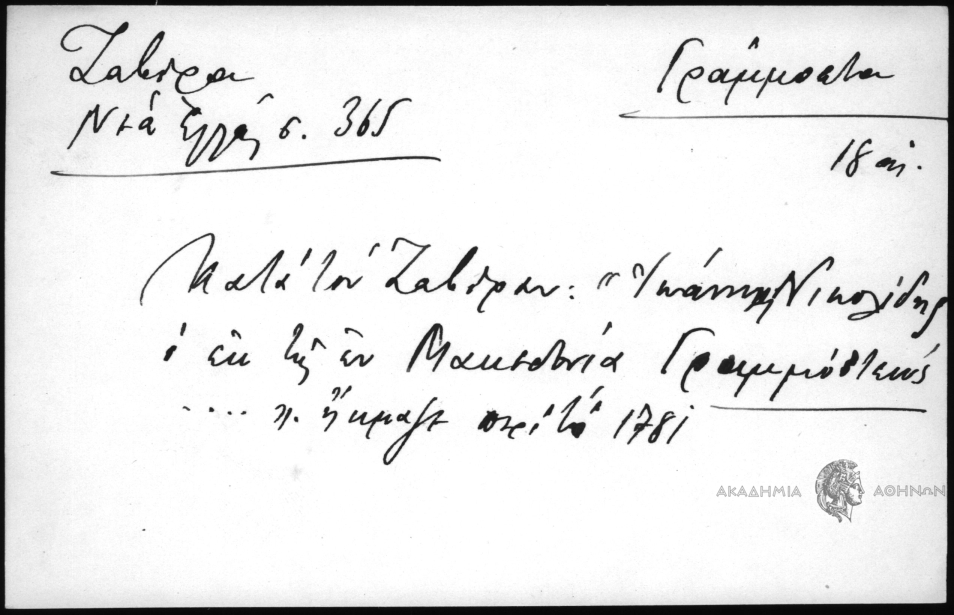 Ζαβίρα
Νέα Ἑλλάς σ. 365
Γράμμοστα
18 αἰ.
Κατά τόν Ζαβίραν: "Ἰωάννης Νικολίδης
ὁ ἐκ τῆς ἐν Μακεδονίᾳ Γραμμόστεως
.... κ. ἤκμαζε περί τό 1781
ΑΚΑΔΗΜΙΑ ΑΘΗΝΩΝ